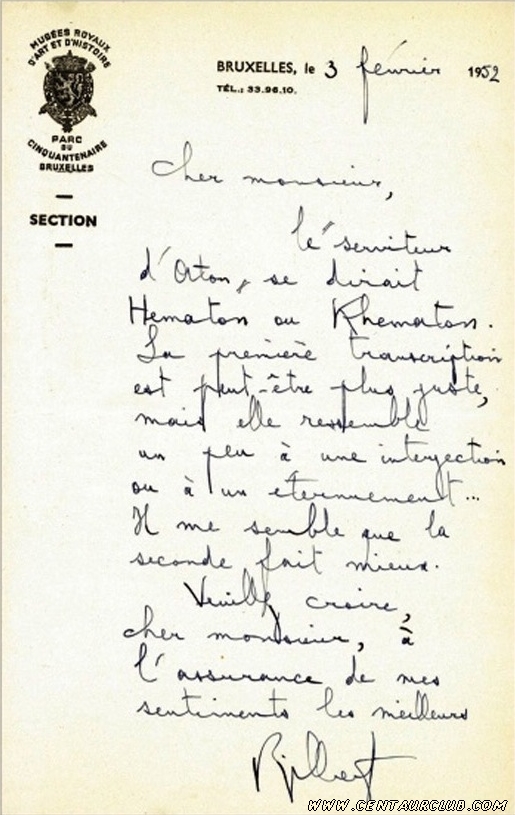 MUSÉES ROYAUX
D'ART ET D'HISTOIRE
PARC
DU
CINQUANTENAIRE
BRUXELLES
SECTION
BRUXELLES, le 3 février 1952
TÉL.: 33.96.10.
Cher monsieur,
le "serviteur
d'Aton" se dirait
Hematon ou Khematon.
La première transcription
est peut-être plus juste,
mais elle ressemble
un peu à une interjection
ou à un éternuement...
Il me semble que la
seconde fait mieux.
Veuillez croire,
cher monsieur, à
l'assurance de mes
sentiments les meilleurs
WWW.CENTAURCLUB.COM